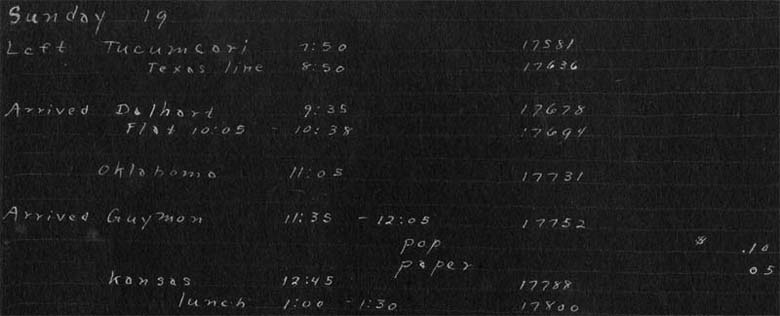 Sunday 19
Left Tucumcari 7:50 17581
Texas line 8:50 17636
Arrived Dalhart 9:35 17678
Flat 10:05 - 10:38 17694
Oklahoma 11:05 17731
Arrived Guymon 11:35 - 12:05 17752
pop .10
paper 05
Kansas 12:45 17788
lunch 1:00 - 1:30 17800